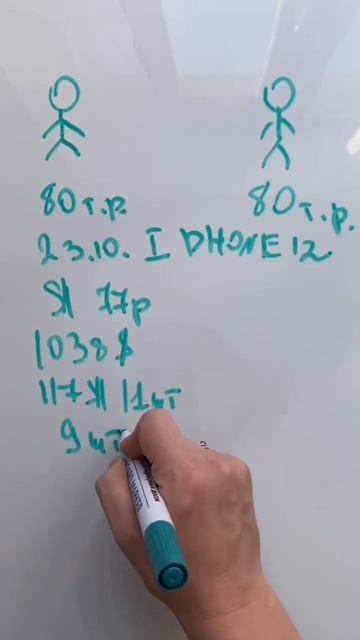 80 т.р. 80 т.р.
23.10. I PHONE 12
$1 77р
1038$
117$ 1шт
9шт